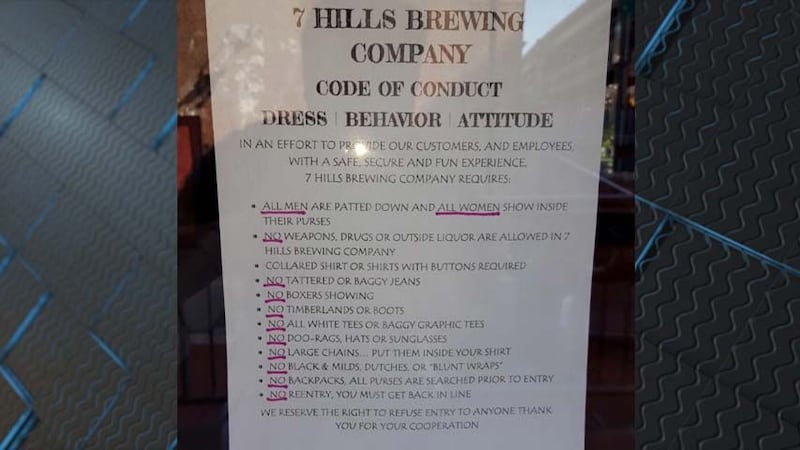 7 HILLS BREWING
COMPANY
CODE OF CONDUCT
DRESS | BEHAVIOR | ATTITUDE
IN AN EFFORT TO PROVIDE OUR CUSTOMERS, AND EMPLOYEES,
WITH A SAFE, SECURE AND FUN EXPERIENCE,
7 HILLS BREWING COMPANY REQUIRES:
• ALL MEN ARE PATTED DOWN AND ALL WOMEN SHOW INSIDE
THEIR PURSES
• NO WEAPONS, DRUGS OR OUTSIDE LIQUOR ARE ALLOWED IN 7
HILLS BREWING COMPANY
• COLLARED SHIRT OR SHIRTS WITH BUTTONS REQUIRED
• NO TATTERED OR BAGGY JEANS
• NO BOXERS SHOWING
• NO TIMBERLANDS OR BOOTS
• NO ALL WHITE TEES OR BAGGY GRAPHIC TEES
• NO DOO-RAGS, HATS OR SUNGLASSES
• NO LARGE CHAINS... PUT THEM INSIDE YOUR SHIRT
• NO BLACK & MILDS, DUTCHES, OR "BLUNT WRAPS"
• NO BACKPACKS, ALL PURSES ARE SEARCHED PRIOR TO ENTRY
• NO REENTRY, YOU MUST GET BACK IN LINE
WE RESERVE THE RIGHT TO REFUSE ENTRY TO ANYONE THANK
YOU FOR YOUR COOPERATION